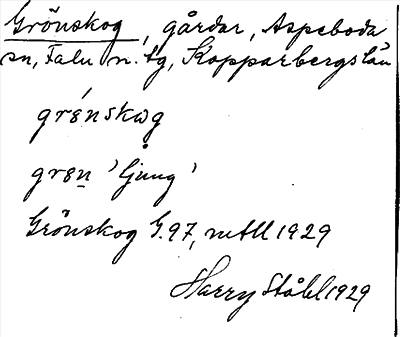 Grönskog, gårdar, Aspeboda
sn, Falu n. tg, Kopparbergs län
grénskωg
gren 'ljung'
Grönskog G.97, mtll 1929
Harry Ståhl 1929